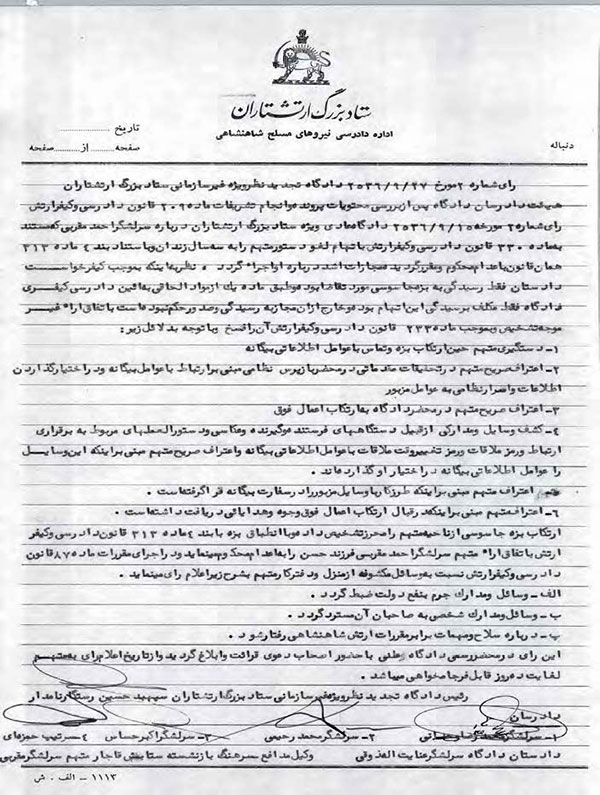 ستاد بزرگ ارتشتاران
اداره دادرسی نیروهای مسلح شاهنشاهی
تاریخ ..........
دنباله
صفحه ........ از ........ صفحه
رای شماره ۲ مورخ ۲۵۳۶/۹/۲۷ دادگاه تجدید نظر ویژه غیر سازمانی ستاد بزرگ ارتشتاران
هیئت دادرسان دادگاه پس از بررسی محتویات پرونده و انجام تشریفات ماده ۲۰۹ قانون دادرسی و کیفر ارتش
رای شماره ۲ مورخه ۲۵۳۶/۹/۱۵ دادگاه عادی ویژه ستاد بزرگ ارتشتاران درباره سرلشگر احمد مقربی که مستند
به ماده ۳۳۰ قانون دادرسی و کیفر ارتش با اتهام لغو دستور متهم را به سه سال زندان و باستناد بند ۴ ماده ۳۱۳
همان قانون با عدام محکوم و مقرر گردید مجازات اشد درباره او اجرا گردد . نظر به اینکه بموجب کیفر خواست
دادستان فقط رسیدگی به بزه جاسوسی مورد تقاضا بوده و طبق ماده یک از مواد الحاقی به آئین دادرسی کیفری
دادگاه فقط مکلف برسیدگی این اتهام بوده و خارج از آن مجاز به رسیدگی و صدور حکم نبوده است با تفاق اراء غیر
موجه تشخیص و بموجب ماده ۲۳۳ قانون دادرسی و کیفر ارتش آن را فسخ و با توجه بدلائل زیر:
۱- دستگیری متهم حین ارتکاب بزه و تماس با عوامل اطلاعاتی بیگانه
۲- اعتراف صریح متهم در تحقیقات مقدماتی در محضر بازپرس نظامی مبنی بر ارتباط با عوامل بیگانه و در اختیار گذاردن
اطلاعات و اسرار نظامی به عوامل مزبور
۳- اعتراف صریح متهم در محضر دادگاه به ارتکاب اعمال فوق
۴- کشف وسایل و مدارکی از قبیل دستگاههای فرستنده و گیرنده و عکاسی و دستورالعملهای مربوط به برقراری
ارتباط و رمز ملاقات و رمز تغییر وقت ملاقات با عوامل اطلاعاتی بیگانه و اعتراف صریح متهم مبنی بر اینکه این وسایل
را عوامل اطلاعاتی بیگانه در اختیار او گذارده اند .
اعتراف متهم مبنی بر اینکه طرز کار با وسایل مزبور را در سفارت بیگانه فرا گرفته است .
۶- اعتراف متهم مبنی بر اینکه در قبال ارتکاب اعمال فوق وجوه و هدایائی دریافت داشته است .
ارتکاب بزه جاسوسی از ناحیه متهم را محرز تشخیص داده و با انطباق بزه با بند ۴ ماده ۳۱۳ قانون دادرسی و کیفر
ارتش با تفاق اراء متهم سرلشگر احمد مقربی فرزند حسن را به اعدام محکوم مینماید و در اجرای مقررات ماده ۸۷ قانون
دادرسی و کیفر ارتش نسبت به وسائل مکشوفه از منزل و دفتر کار متهم بشرح زیر اعلام رای مینماید .
الف- وسائل و مدارک جرم بنفع دولت ضبط گردد .
ب- وسائل و مدارک شخصی به صاحبان آن مسترد گردد .
پ- درباره سلاح و مهمات برابر مقررات ارتش شاهنشاهی رفتار شود .
این رای در محضر رسمی دادگاه علنی با حضور اصحاب دعوی قرائت و ابلاغ گردید و از تاریخ اعلام رای به متهم
لغایت ده روز قابل فرجامخواهی میباشد .
رئیس دادگاه تجدید نظر ویژه غیر سازمانی ستاد بزرگ ارتشتاران سپهبد حسین رستگار نامدار
دادرسان
۱- سرلشگر ۲- سرلشگر محمد رحیمی ۳- سرلشگر اکبر حساس ۴- سرتیپ حمزه ای
دادستان دادگاه سرلشگر عنایت الله ذوقی وکیل مدافع سرهنگ بازنشسته ستایش قاجار متهم سرلشگر مقربی
۱۱۱۳ - الف . ش